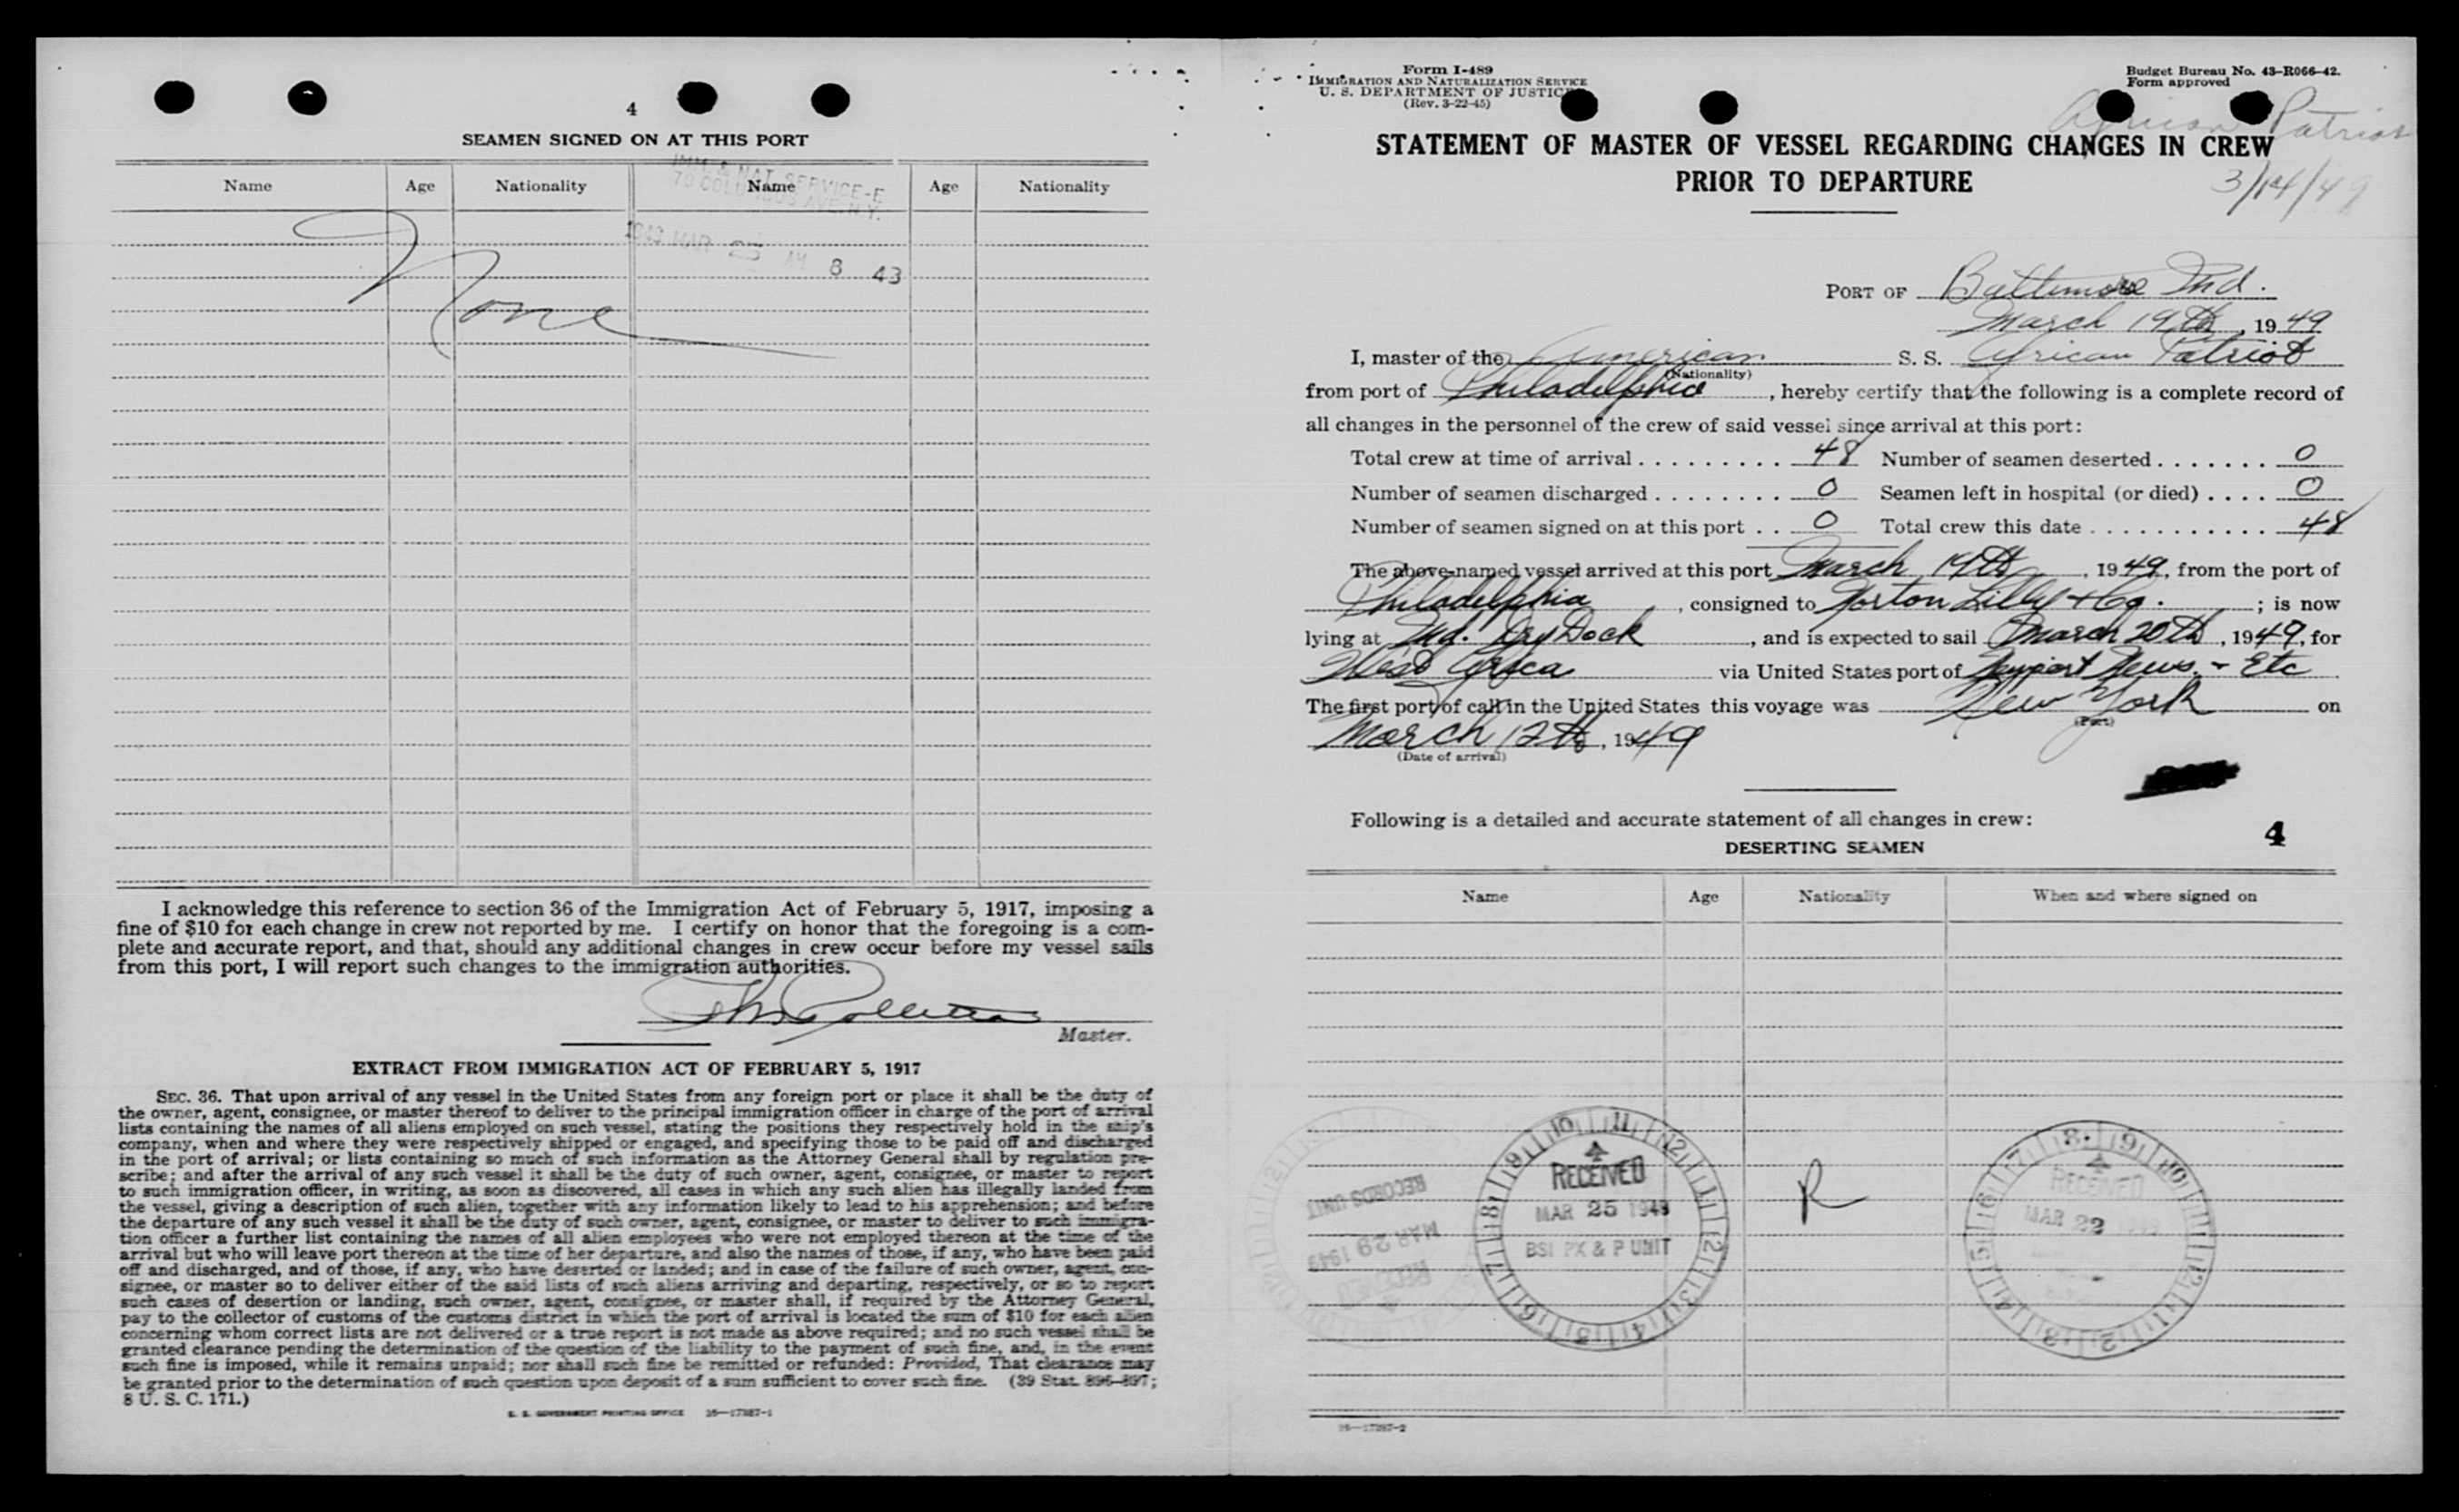 4
SEAMEN SIGNED ON AT THIS PORT
IMM. & NAT. SERVICE-E
70 COLUMBUS AVE. N.Y.
Name Age Nationality Name Age Nationality
1949 MAR 25 AM 8 43
None
I acknowledge this reference to section 36 of the Immigration Act of February 5, 1917, imposing a
fine of $10 for each change in crew not reported by me. I certify on honor that the foregoing is a com-
plete and accurate report, and that, should any additional changes in crew occur before my vessel sails
from this port, I will report such changes to the immigration authorities.
Master.
EXTRACT FROM IMMIGRATION ACT OF FEBRUARY 5, 1917
SEC. 36. That upon arrival of any vessel in the United States from any foreign port or place it shall be the duty of
the owner, agent, consignee, or master thereof to deliver to the principal immigration officer in charge of the port of arrival
lists containing the names of all aliens employed on such vessel, stating the positions they respectively hold in the ship's
company, when and where they were respectively shipped or engaged, and specifying those to be paid off and discharged
in the port of arrival; or lists containing so much of such information as the Attorney General shall by regulation pre-
scribe; and after the arrival of any such vessel it shall be the duty of such owner, agent, consignee, or master to report
to such immigration officer, in writing, as soon as discovered, all cases in which any such alien has illegally landed from
the vessel, giving a description of such alien, together with any information likely to lead to his apprehension; and before
the departure of any such vessel it shall be the duty of such owner, agent, consignee, or master to deliver to such immigra-
tion officer a further list containing the names of all alien employees who were not employed thereon at the time of the
arrival but who will leave port thereon at the time of her departure, and also the names of those, if any, who have been paid
off and discharged, and of those, if any, who have deserted or landed; and in case of the failure of such owner, agent, con-
signee, or master so to deliver either of the said lists of such aliens arriving and departing, respectively, or so to report
such cases of desertion or landing, such owner, agent, consignee, or master shall, if required by the Attorney General,
pay to the collector of customs of the customs district in which the port of arrival is located the sum of $10 for each alien
concerning whom correct lists are not delivered or a true report is not made as above required; and no such vessel shall be
granted clearance pending the determination of the question of the liability to the payment of such fine, and, in the event
such fine is imposed, while it remains unpaid; nor shall such fine be remitted or refunded: Provided, That clearance may
be granted prior to the determination of such question upon deposit of a sum sufficient to cover such fine. (39 Stat. 896-897;
8 U. S. C. 171.)
U. S. GOVERNMENT PRINTING OFFICE 16—17387-1
Form I-489
IMMIGRATION AND NATURALIZATION SERVICE
U. S. DEPARTMENT OF JUSTICE
(Rev. 3-22-45)
Budget Bureau No. 43-R066-42.
Form approved
African Patriot
STATEMENT OF MASTER OF VESSEL REGARDING CHANGES IN CREW
PRIOR TO DEPARTURE
3/14/49
PORT OF Baltimore Md.
March 19th, 1949
I, master of the American S. S. African Patriot
(Nationality)
from port of Philadelphia, hereby certify that the following is a complete record of
all changes in the personnel of the crew of said vessel since arrival at this port:
Total crew at time of arrival 48 Number of seamen deserted 0
Number of seamen discharged 0 Seamen left in hospital (or died) 0
Number of seamen signed on at this port 0 Total crew this date 48
The above-named vessel arrived at this port March 19th, 1949, from the port of
Philadelphia, consigned to Norton Lilly & Co.; is now
lying at Md. Dry Dock, and is expected to sail March 20th, 1949, for
West Africa via United States port of Newport News - Etc
The first port of call in the United States this voyage was New York on
(Port)
March 12th, 1949
(Date of arrival)
Following is a detailed and accurate statement of all changes in crew:
4
DESERTING SEAMEN
Name Age Nationality When and where signed on
RECORDS UNIT
MAR 29 1949
RECEIVED
RECEIVED
MAR 25 1949
BSI PX & P UNIT
R
RECEIVED
MAR 22 1949
16—17387-2